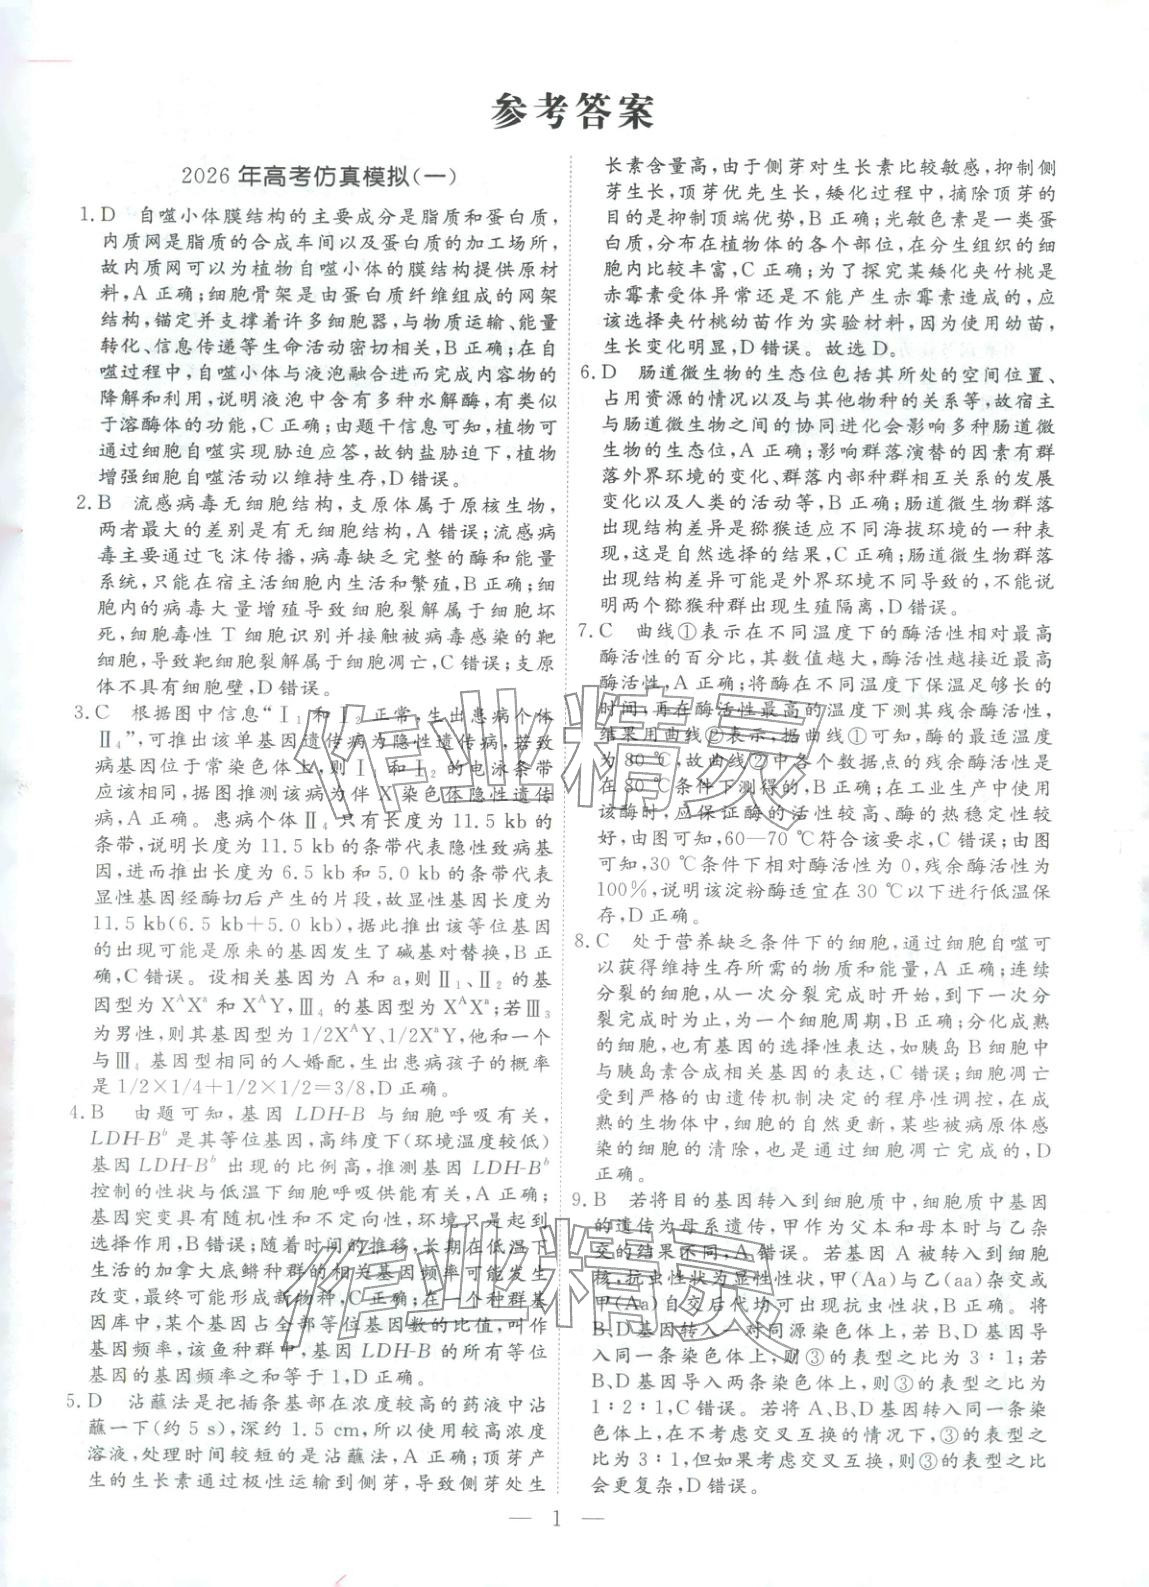 参考答案
2026年高考仿真模拟(一)
1.D 自噬小体膜结构的主要成分是脂质和蛋白质,
内质网是脂质的合成车间以及蛋白质的加工场所,
故内质网可以为植物自噬小体的膜结构提供原材
料,A正确;细胞骨架是由蛋白质纤维组成的网架
结构,锚定并支撑着许多细胞器,与物质运输、能量
转化、信息传递等生命活动密切相关,B正确;在自
噬过程中,自噬小体与液泡融合进而完成内容物的
降解和利用,说明液泡中含有多种水解酶,有类似
于溶酶体的功能,C正确;由题干信息可知,植物可
通过细胞自噬实现胁迫应答,故钠盐胁迫下,植物
增强细胞自噬活动以维持生存,D错误。
2.B 流感病毒无细胞结构,支原体属于原核生物,
两者最大的差别是有无细胞结构,A错误;流感病
毒主要通过飞沫传播,病毒缺乏完整的酶和能量
系统,只能在宿主活细胞内生活和繁殖,B正确;细
胞内的病毒大量增殖导致细胞裂解属于细胞坏
死,细胞毒性T细胞识别并接触被病毒感染的靶
细胞,导致靶细胞裂解属于细胞凋亡,C错误;支原
体不具有细胞壁,D错误。
3.C 根据图中信息“Ⅰ₁和Ⅰ₂正常,生出患病个体
Ⅱ₄”,可推出该单基因遗传病为隐性遗传病,若致
病基因位于常染色体上,则Ⅰ₁和Ⅰ₂的电泳条带
应该相同,据图推测该病为伴X染色体隐性遗传
病,A正确。患病个体Ⅱ₄只有长度为11.5 kb的
条带,说明长度为11.5 kb的条带代表隐性致病基
因,进而推出长度为6.5 kb和5.0 kb的条带代表
显性基因经酶切后产生的片段,故显性基因长度为
11.5 kb(6.5 kb+5.0 kb),据此推出该等位基因
的出现可能是原来的基因发生了碱基对替换,B正
确,C错误。设相关基因为A和a,则Ⅱ₁、Ⅱ₂的基
因型为XᴬXᵃ和XᴬY,Ⅲ₄的基因型为XᴬXᵃ;若Ⅲ₃
为男性,则其基因型为1/2XᴬY、1/2XᵃY,他和一个
与Ⅲ₄基因型相同的人婚配,生出患病孩子的概率
是1/2×1/4+1/2×1/2=3/8,D正确。
4.B 由题可知,基因LDH-B与细胞呼吸有关,
LDH-Bᵇ是其等位基因,高纬度下(环境温度较低)
基因LDH-Bᵇ出现的比例高,推测基因LDH-Bᵇ
控制的性状与低温下细胞呼吸供能有关,A正确;
基因突变具有随机性和不定向性,环境只是起到
选择作用,B错误;随着时间的推移,长期在低温下
生活的加拿大底鳉种群的相关基因频率可能发生
改变,最终可能形成新物种,C正确;在一个种群基
因库中,某个基因占全部等位基因数的比值,叫作
基因频率,该鱼种群中,基因LDH-B的所有等位
基因的基因频率之和等于1,D正确。
5.D 沾蘸法是把插条基部在浓度较高的药液中沾
蘸一下(约5 s),深约1.5 cm,所以使用较高浓度
溶液,处理时间较短的是沾蘸法,A正确;顶芽产
生的生长素通过极性运输到侧芽,导致侧芽处生
长素含量高,由于侧芽对生长素比较敏感,抑制侧
芽生长,顶芽优先生长,矮化过程中,摘除顶芽的
目的是抑制顶端优势,B正确;光敏色素是一类蛋
白质,分布在植物体的各个部位,在分生组织的细
胞内比较丰富,C正确;为了探究某矮化夹竹桃是
赤霉素受体异常还是不能产生赤霉素造成的,应
该选择夹竹桃幼苗作为实验材料,因为使用幼苗,
生长变化明显,D错误。故选D。
6.D 肠道微生物的生态位包括其所处的空间位置、
占用资源的情况以及与其他物种的关系等,故宿主
与肠道微生物之间的协同进化会影响多种肠道微
生物的生态位,A正确;影响群落演替的因素有群
落外界环境的变化、群落内部种群相互关系的发展
变化以及人类的活动等,B正确;肠道微生物群落
出现结构差异是猕猴适应不同海拔环境的一种表
现,这是自然选择的结果,C正确;肠道微生物群落
出现结构差异可能是外界环境不同导致的,不能说
明两个猕猴种群出现生殖隔离,D错误。
7.C 曲线①表示在不同温度下的酶活性相对最高
酶活性的百分比,其数值越大,酶活性越接近最高
酶活性,A正确;将酶在不同温度下保温足够长的
时间,再在酶活性最高的温度下测其残余酶活性,
结果用曲线②表示,据曲线①可知,酶的最适温度
为80 ℃,故曲线②中各个数据点的残余酶活性是
在80 ℃条件下测得的,B正确;在工业生产中使用
该酶时,应保证酶的活性较高、酶的热稳定性较
好,由图可知,60—70 ℃符合该要求,C错误;由图
可知,30 ℃条件下相对酶活性为0,残余酶活性为
100%,说明该淀粉酶适宜在30 ℃以下进行低温保
存,D正确。
8.C 处于营养缺乏条件下的细胞,通过细胞自噬可
以获得维持生存所需的物质和能量,A正确;连续
分裂的细胞,从一次分裂完成时开始,到下一次分
裂完成时为止,为一个细胞周期,B正确;分化成熟
的细胞,也有基因的选择性表达,如胰岛B细胞中
与胰岛素合成相关基因的表达,C错误;细胞凋亡
受到严格的由遗传机制决定的程序性调控,在成
熟的生物体中,细胞的自然更新,某些被病原体感
染的细胞的清除,也是通过细胞凋亡完成的,D
正确。
9.B 若将目的基因转入到细胞质中,细胞质中基因
的遗传为母系遗传,甲作为父本和母本时与乙杂
交的结果不同,A错误。若基因A被转入到细胞
核,抗虫性状为显性性状,甲(Aa)与乙(aa)杂交或
甲(Aa)自交后代均可出现抗虫性状,B正确。将
B、D基因转入一对同源染色体上,若B、D基因导
入同一条染色体上,则③的表型之比为3∶1;若
B、D基因导入两条染色体上,则③的表型之比为
1∶2∶1,C错误。若将A、B、D基因转入同一条染
色体上,在不考虑交叉互换的情况下,③的表型之
比为3∶1,但如果考虑交叉互换,则③的表型之比
会更复杂,D错误。
— 1 —
作业精灵
作业精灵